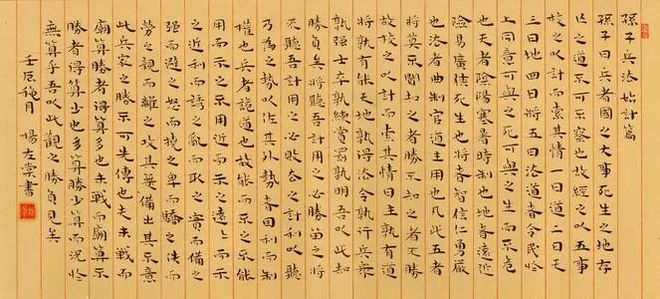 孫子兵法始計篇
孫子曰兵者國之大事死生之地存
亡之道不可不察也故經之以五事
校之以計而索其情一曰道二曰天
三曰地四曰將五曰法道者令民於
上同意可與之死可與之生而不危
也天者陰陽寒暑時制也地者遠近
險易廣狹死生也將者智信仁勇嚴
也法者曲制官道主用也凡此五者
將莫不聞知之者勝不知之者不勝
故校之以計而索其情曰主孰有道
將孰有能天地孰得法令孰行兵衆
孰强士卒孰練賞罰孰明吾以此知
勝負矣將聽吾計用之必勝留之將
不聽吾計用之必敗去之計利以聽
乃為之勢以佐其外勢者因利而制
權也兵者詭道也故能而示之不能
用而示之不用近而示之遠〻而示
之近利而誘之亂而取之實而備之
强而避之怒而撓之卑而驕之佚而
勞之親而離之攻其無備出其不意
此兵家之勝不可先傳也夫未戰而
廟算勝者得算多也未戰而廟算不
勝者得算少也多算勝少算而況於
無算乎吾以此觀之勝負見矣
壬辰秋月 楊左棠書